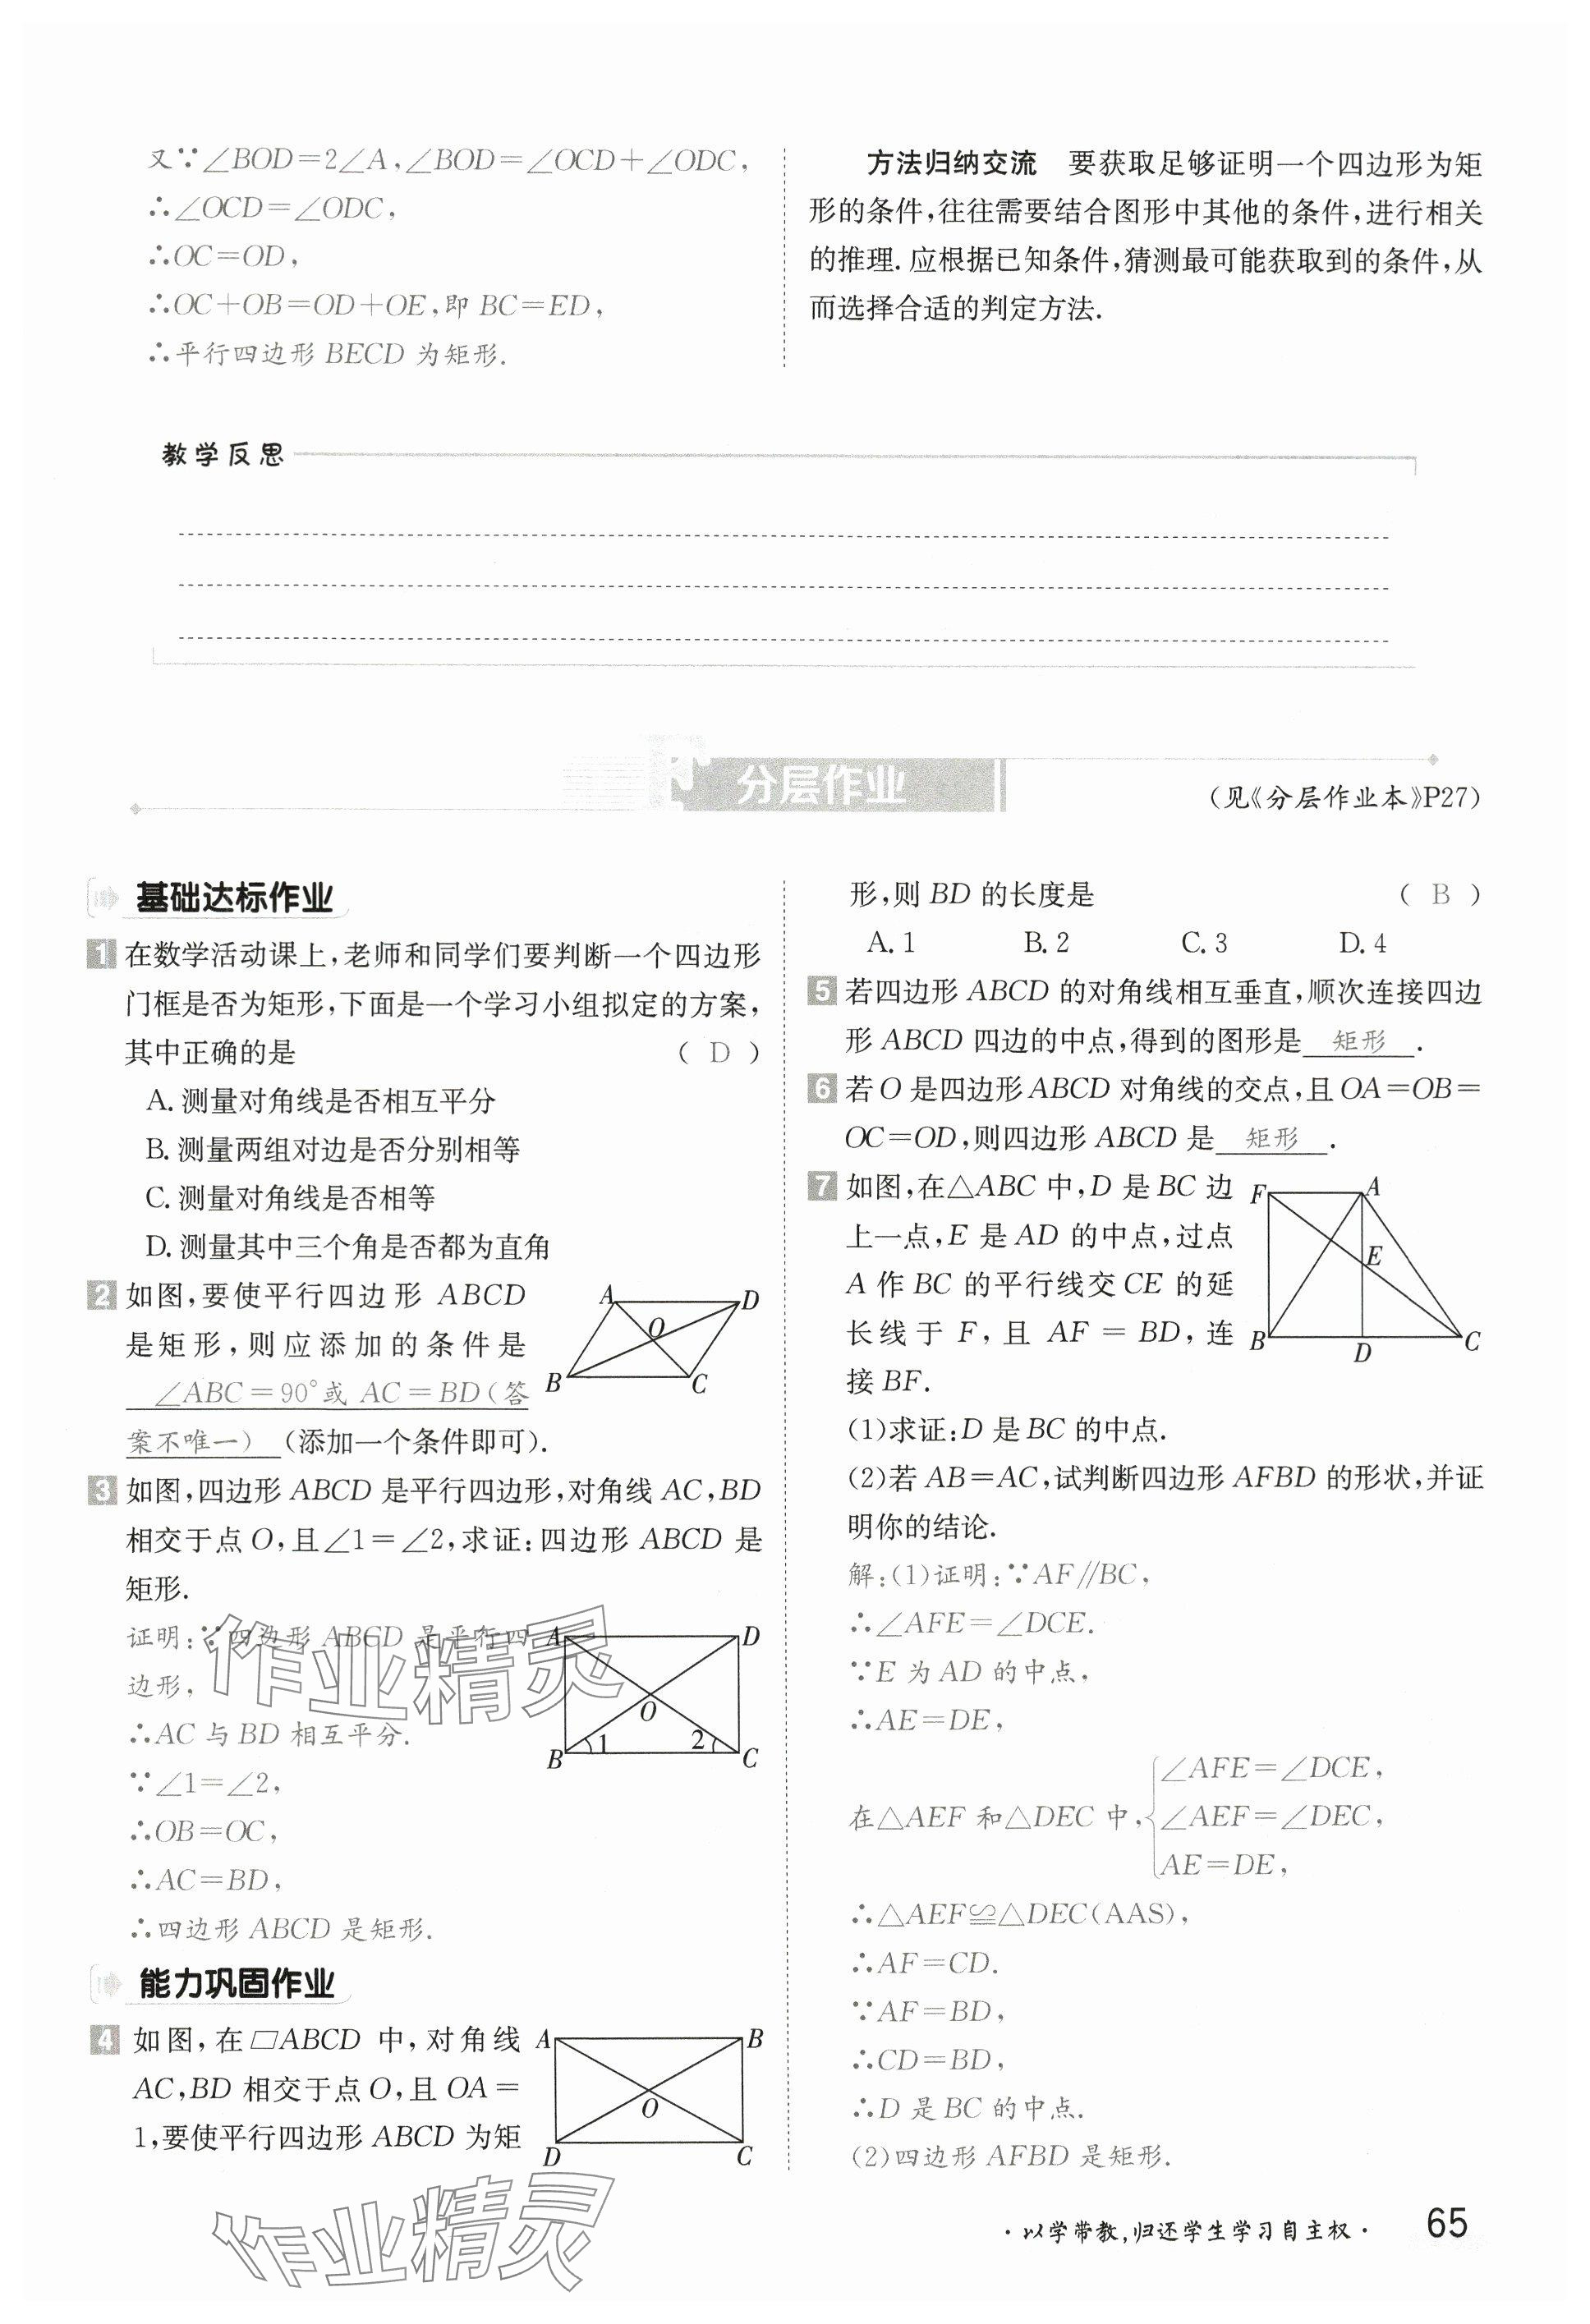 又∵∠BOD=2∠A,∠BOD=∠OCD+∠ODC,
∴∠OCD=∠ODC,
∴OC=OD,
∴OC+OB=OD+OE,即 BC=ED,
∴平行四边形 BECD 为矩形.
方法归纳交流 要获取足够证明一个四边形为矩
形的条件,往往需要结合图形中其他的条件,进行相关
的推理.应根据已知条件,猜测最可能获取到的条件,从
而选择合适的判定方法.
教学反思
分层作业
(见《分层作业本》P27)
基础达标作业
1 在数学活动课上,老师和同学们要判断一个四边形
门框是否为矩形,下面是一个学习小组拟定的方案,
其中正确的是 ( D )
A.测量对角线是否相互平分
B.测量两组对边是否分别相等
C.测量对角线是否相等
D.测量其中三个角是否都为直角
2 如图,要使平行四边形 ABCD
是矩形,则应添加的条件是
∠ABC=90°或 AC=BD(答
案不唯一) (添加一个条件即可).
A D O B C
3 如图,四边形 ABCD 是平行四边形,对角线 AC,BD
相交于点 O,且∠1=∠2,求证:四边形 ABCD 是
矩形.
证明:∵四边形 ABCD 是平行四
边形,
∴AC 与 BD 相互平分.
∵∠1=∠2,
∴OB=OC,
∴AC=BD,
∴四边形 ABCD 是矩形.
A D O B 1 2 C
能力巩固作业
4 如图,在▱ABCD 中,对角线
AC,BD 相交于点 O,且 OA=
1,要使平行四边形 ABCD 为矩
A B O D C
形,则 BD 的长度是 ( B )
A.1 B.2 C.3 D.4
5 若四边形 ABCD 的对角线相互垂直,顺次连接四边
形 ABCD 四边的中点,得到的图形是 矩形 .
6 若 O 是四边形 ABCD 对角线的交点,且 OA=OB=
OC=OD,则四边形 ABCD 是 矩形 .
7 如图,在△ABC 中,D 是 BC 边
上一点,E 是 AD 的中点,过点
A 作 BC 的平行线交 CE 的延
长线于 F,且 AF=BD,连
接 BF.
F A E B D C
(1)求证:D 是 BC 的中点.
(2)若 AB=AC,试判断四边形 AFBD 的形状,并证
明你的结论.
解:(1)证明:∵AF∥BC,
∴∠AFE=∠DCE.
∵E 为 AD 的中点,
∴AE=DE,
在△AEF 和△DEC 中,{∠AFE=∠DCE,
∠AEF=∠DEC,
AE=DE,
∴△AEF≌△DEC(AAS),
∴AF=CD.
∵AF=BD,
∴CD=BD,
∴D 是 BC 的中点.
(2)四边形 AFBD 是矩形.
作业精灵
作业精灵
·以学带教,归还学生学习自主权· 65